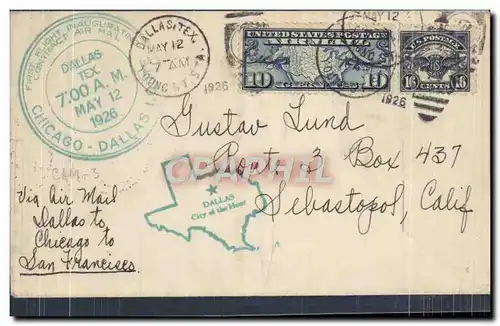 FIRST FLIGHT INAUGURATING
CONTRACT AIR MAIL
DALLAS
TEX.
7:00 A.M.
MAY 12
1926
CHICAGO - DALLAS
DALLAS, TEX.
MAY 12
7 AM
1926
UNITED STATES POSTAGE
AIR MAIL
10 CENTS 10
MAY 12
1926
U.S. POSTAGE
16 CENTS 16
Gustav Lund
Rout. 3 Box 437
Sebastopol, Calif
CAM-3
Via Air Mail
Dallas to
Chicago to
San Francisco.
DALLAS
City of the Hour
DELCAMPHIL